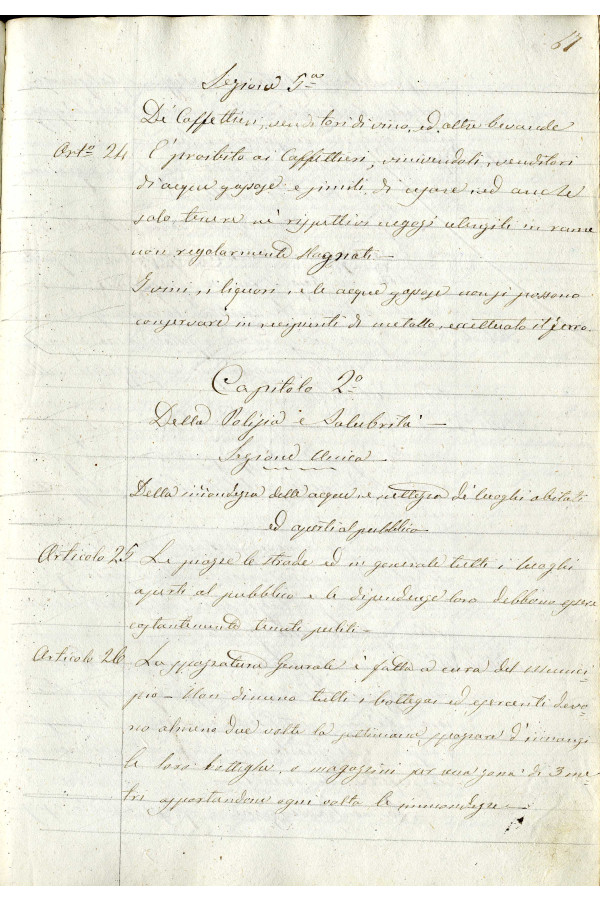 67
Sezione 5ª
De' Caffettieri, venditori di vino, ed altre bevande
Artº 24 È proibito ai Caffettieri, vinivendoli, venditori
di acque gasose e simili di usare, ed anche
solo tenere ne' rispettivi negozi utensili in rame
non regolarmente stagnati.-
I vini, i liquori, e le acque gasose non si possono
conservare in recipienti di metallo, eccettuato il ferro.
Capitolo 2º
Della Polizia e Salubrità -
Sezione Unica
Della mondezza delle acque e nettezza de' luoghi abitati
ed aperti al pubblico
Articolo 25 Le piazze le strade ed in generale tutti i luoghi
aperti al pubblico e le dipendenze loro debbono essere
costantemente tenuti puliti.-
Articolo 26 La spazzatura Generale è fatta a cura del Munici-
pio - Non dimeno tutti i bottegai ed esercenti devo-
no almeno due volte la settimana spazzare d'innanzi
le loro botteghe, o magazzini per una zona di 3 me-
tri asportandone ogni volta le immondezze -